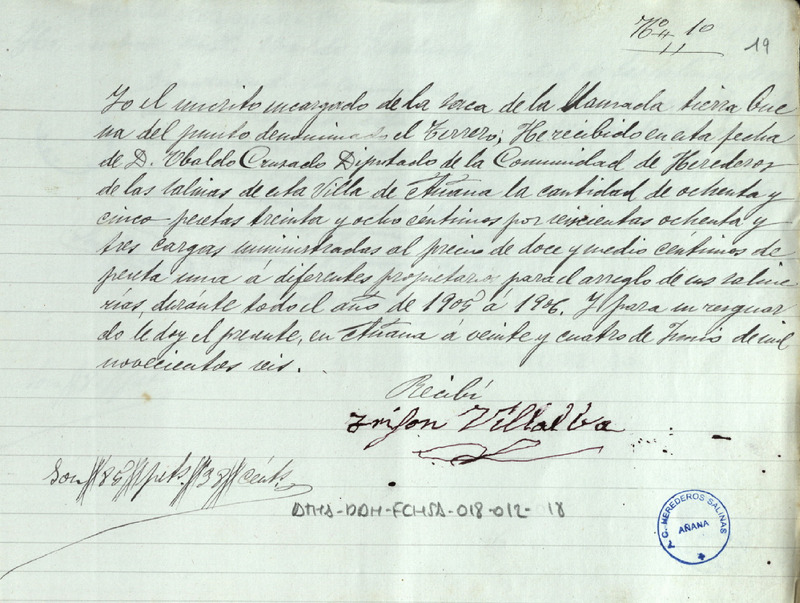 Nº 10
19
Yo el suscrito encargado de la saca de la llamada tierra bue
na del punto denominado el Terrero, He recibido en esta fecha
de D. Ubaldo Cruzado Diputado de la Comunidad de Herederos
de las salinas de esta Villa de Añana la cantidad de ochenta y
cinco pesetas treinta y ocho céntimos por seiscientas ochenta y
tres cargas suministradas al precio de doce y medio céntimos de
peseta una á diferentes propietarios para el arreglo de sus saline
rias, durante todo el año de 1905 á 1906. Y para su resguar
do le doy el presente, en Añana á veinte y cuatro de Junio de mil
novecientos seis.
Recibí
Trifon Villalba
Son 85 pets 38 cénts
DMHA-DDH-FCHSA-018-012-18
C. HEREDEROS SALINAS
AÑANA